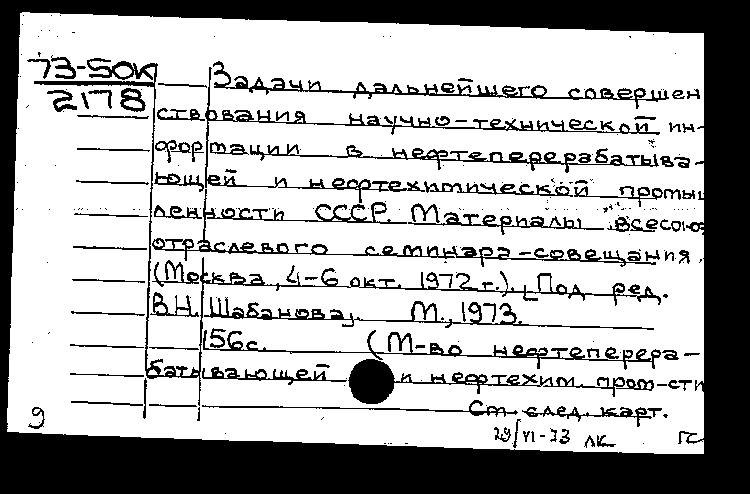 73-50К
2178
Задачи дальнейшего совершен
ствования научно-технической ин-
формации в нефтеперерабатыва-
ющей и нефтехимической промыш
ленности СССР. Материалы всесоюз
отраслевого семинара-совещания.
(Москва, 4-6 окт. 1972 г.). Под ред.
В.Н. Шабанова. М., 1973.
156с. (М-во нефтеперера-
батывающей и нефтехим. пром-сти
См. след. карт.
9
29/VI-73 ЛК ГС